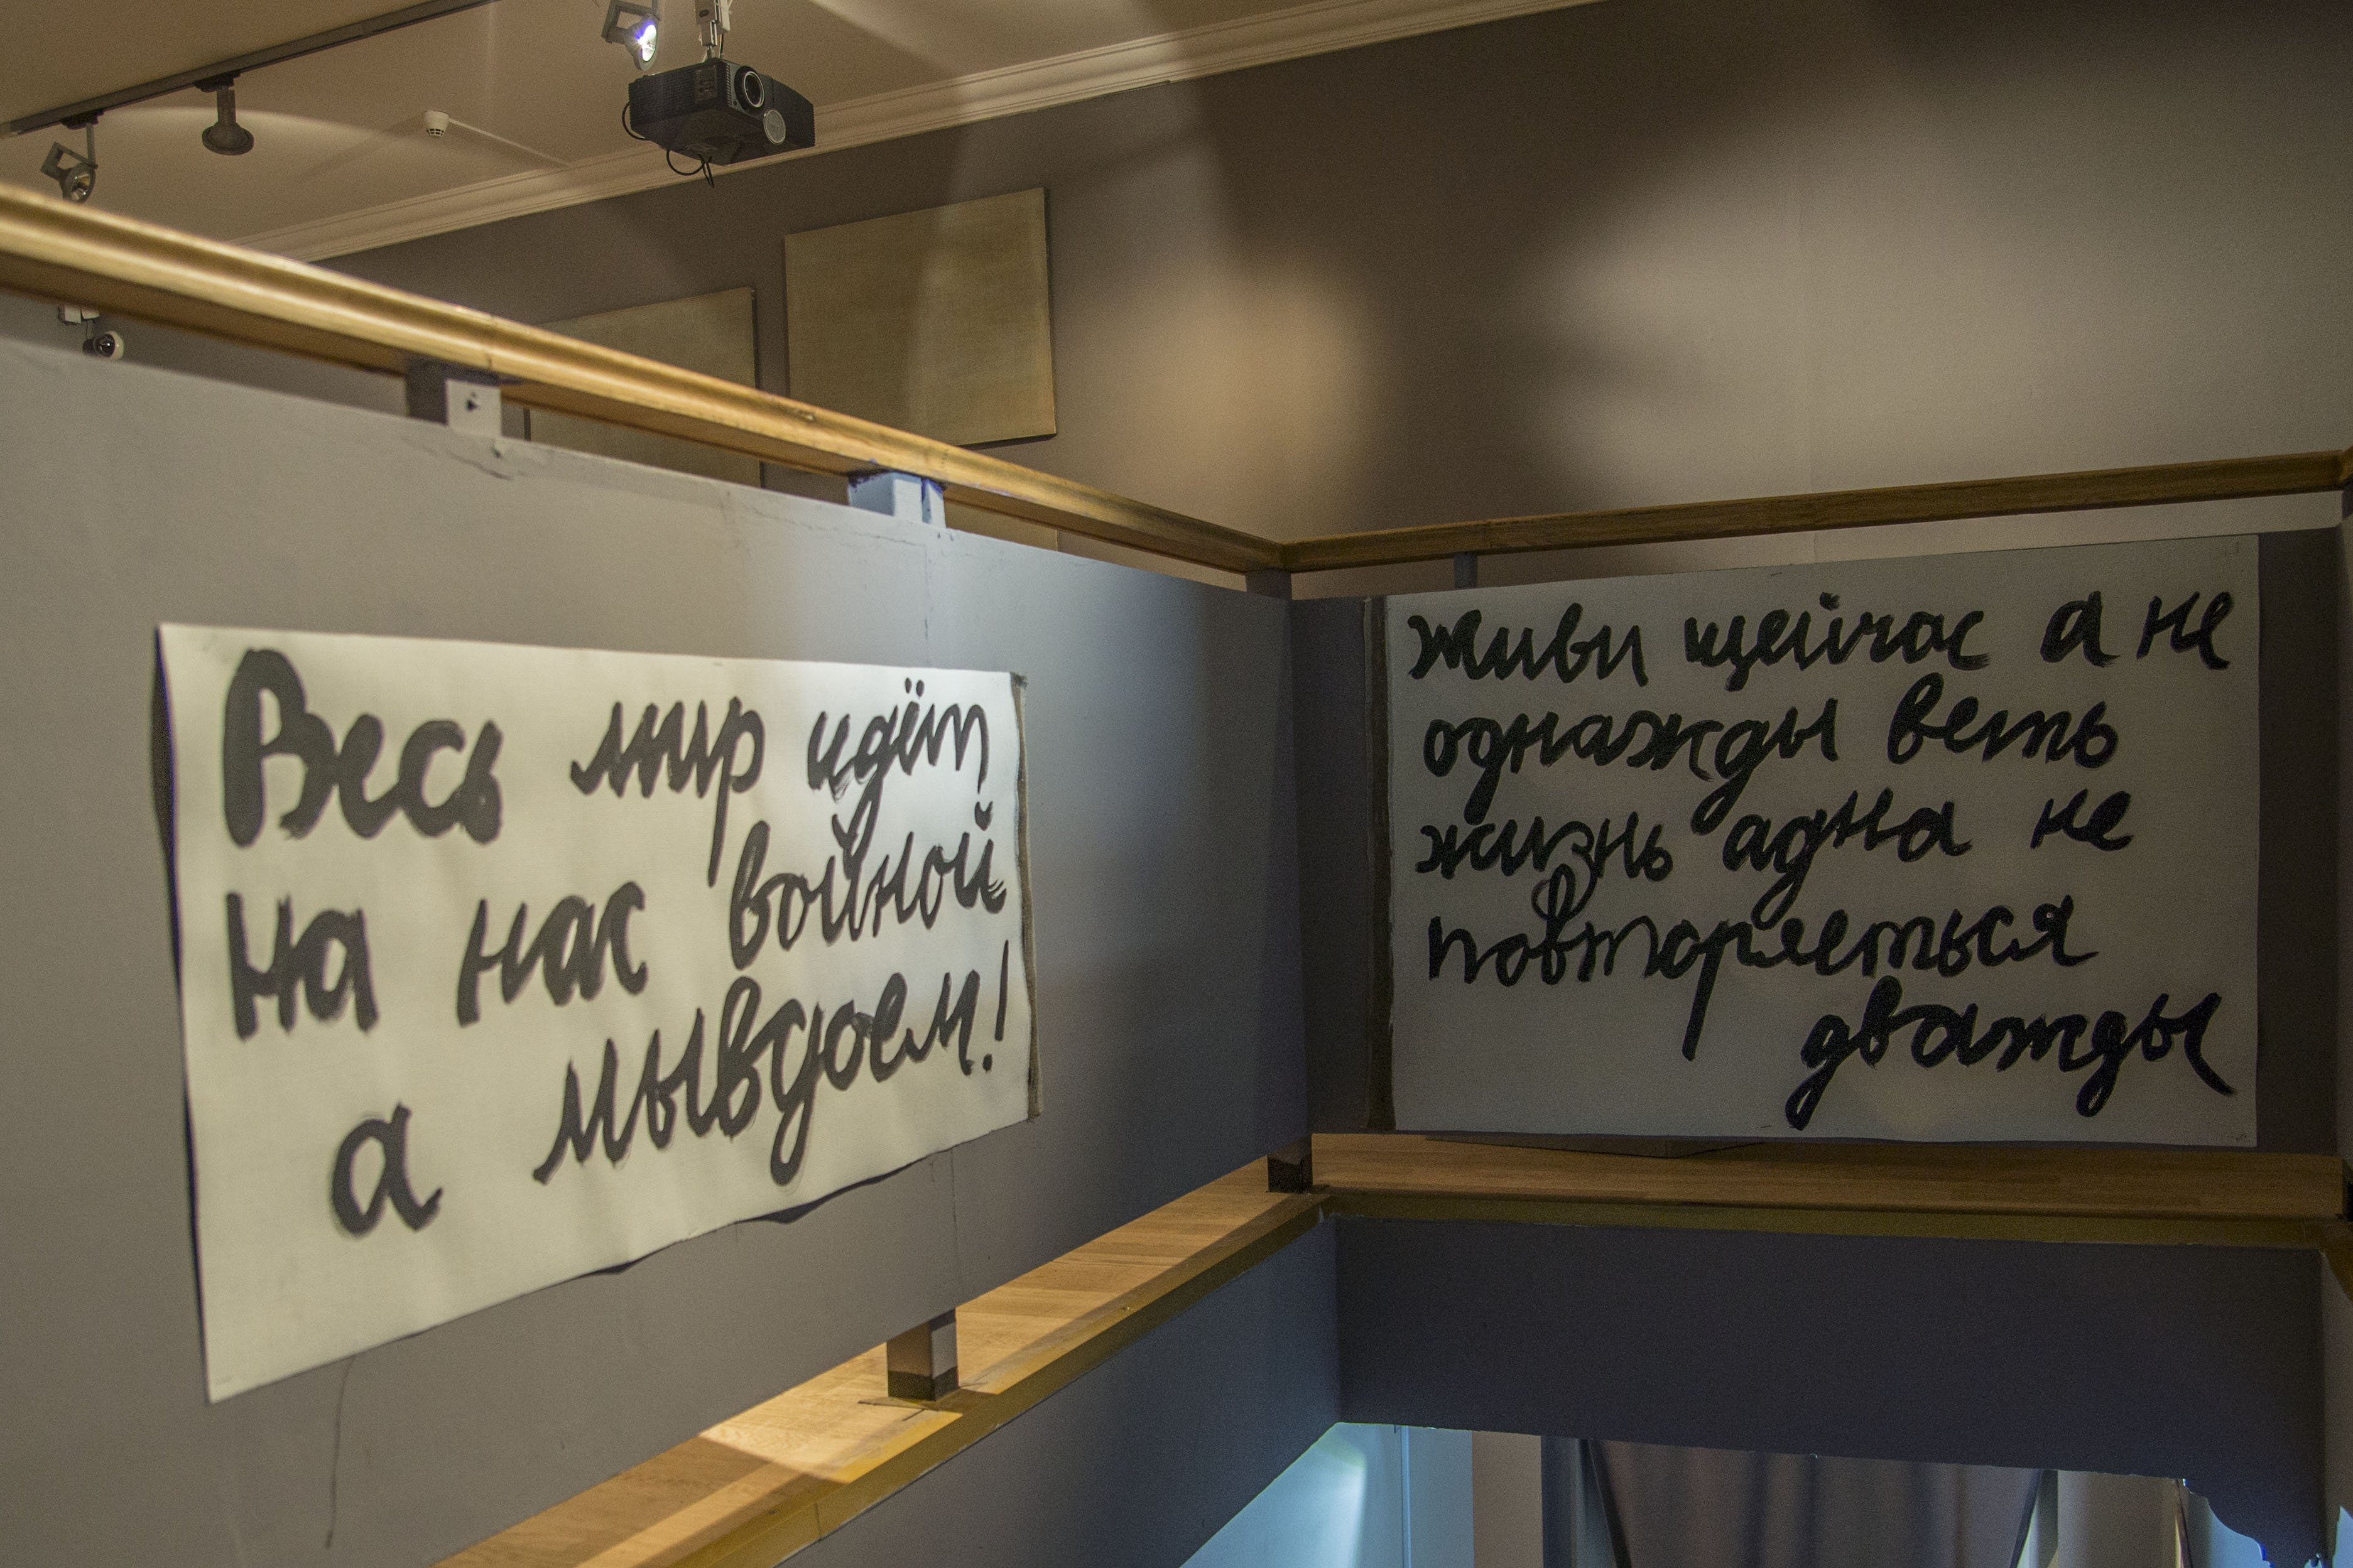 Весь мир идёт
на нас войной
а мывдоем!
живи щейчас а не
однажды веть
жизнь адна не
повторяеться
дважды